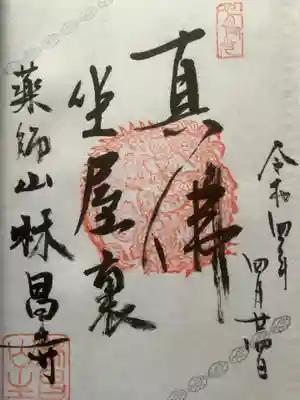 令和四年 四月廿四日
真佛
坐屋裏
薬師山林昌寺